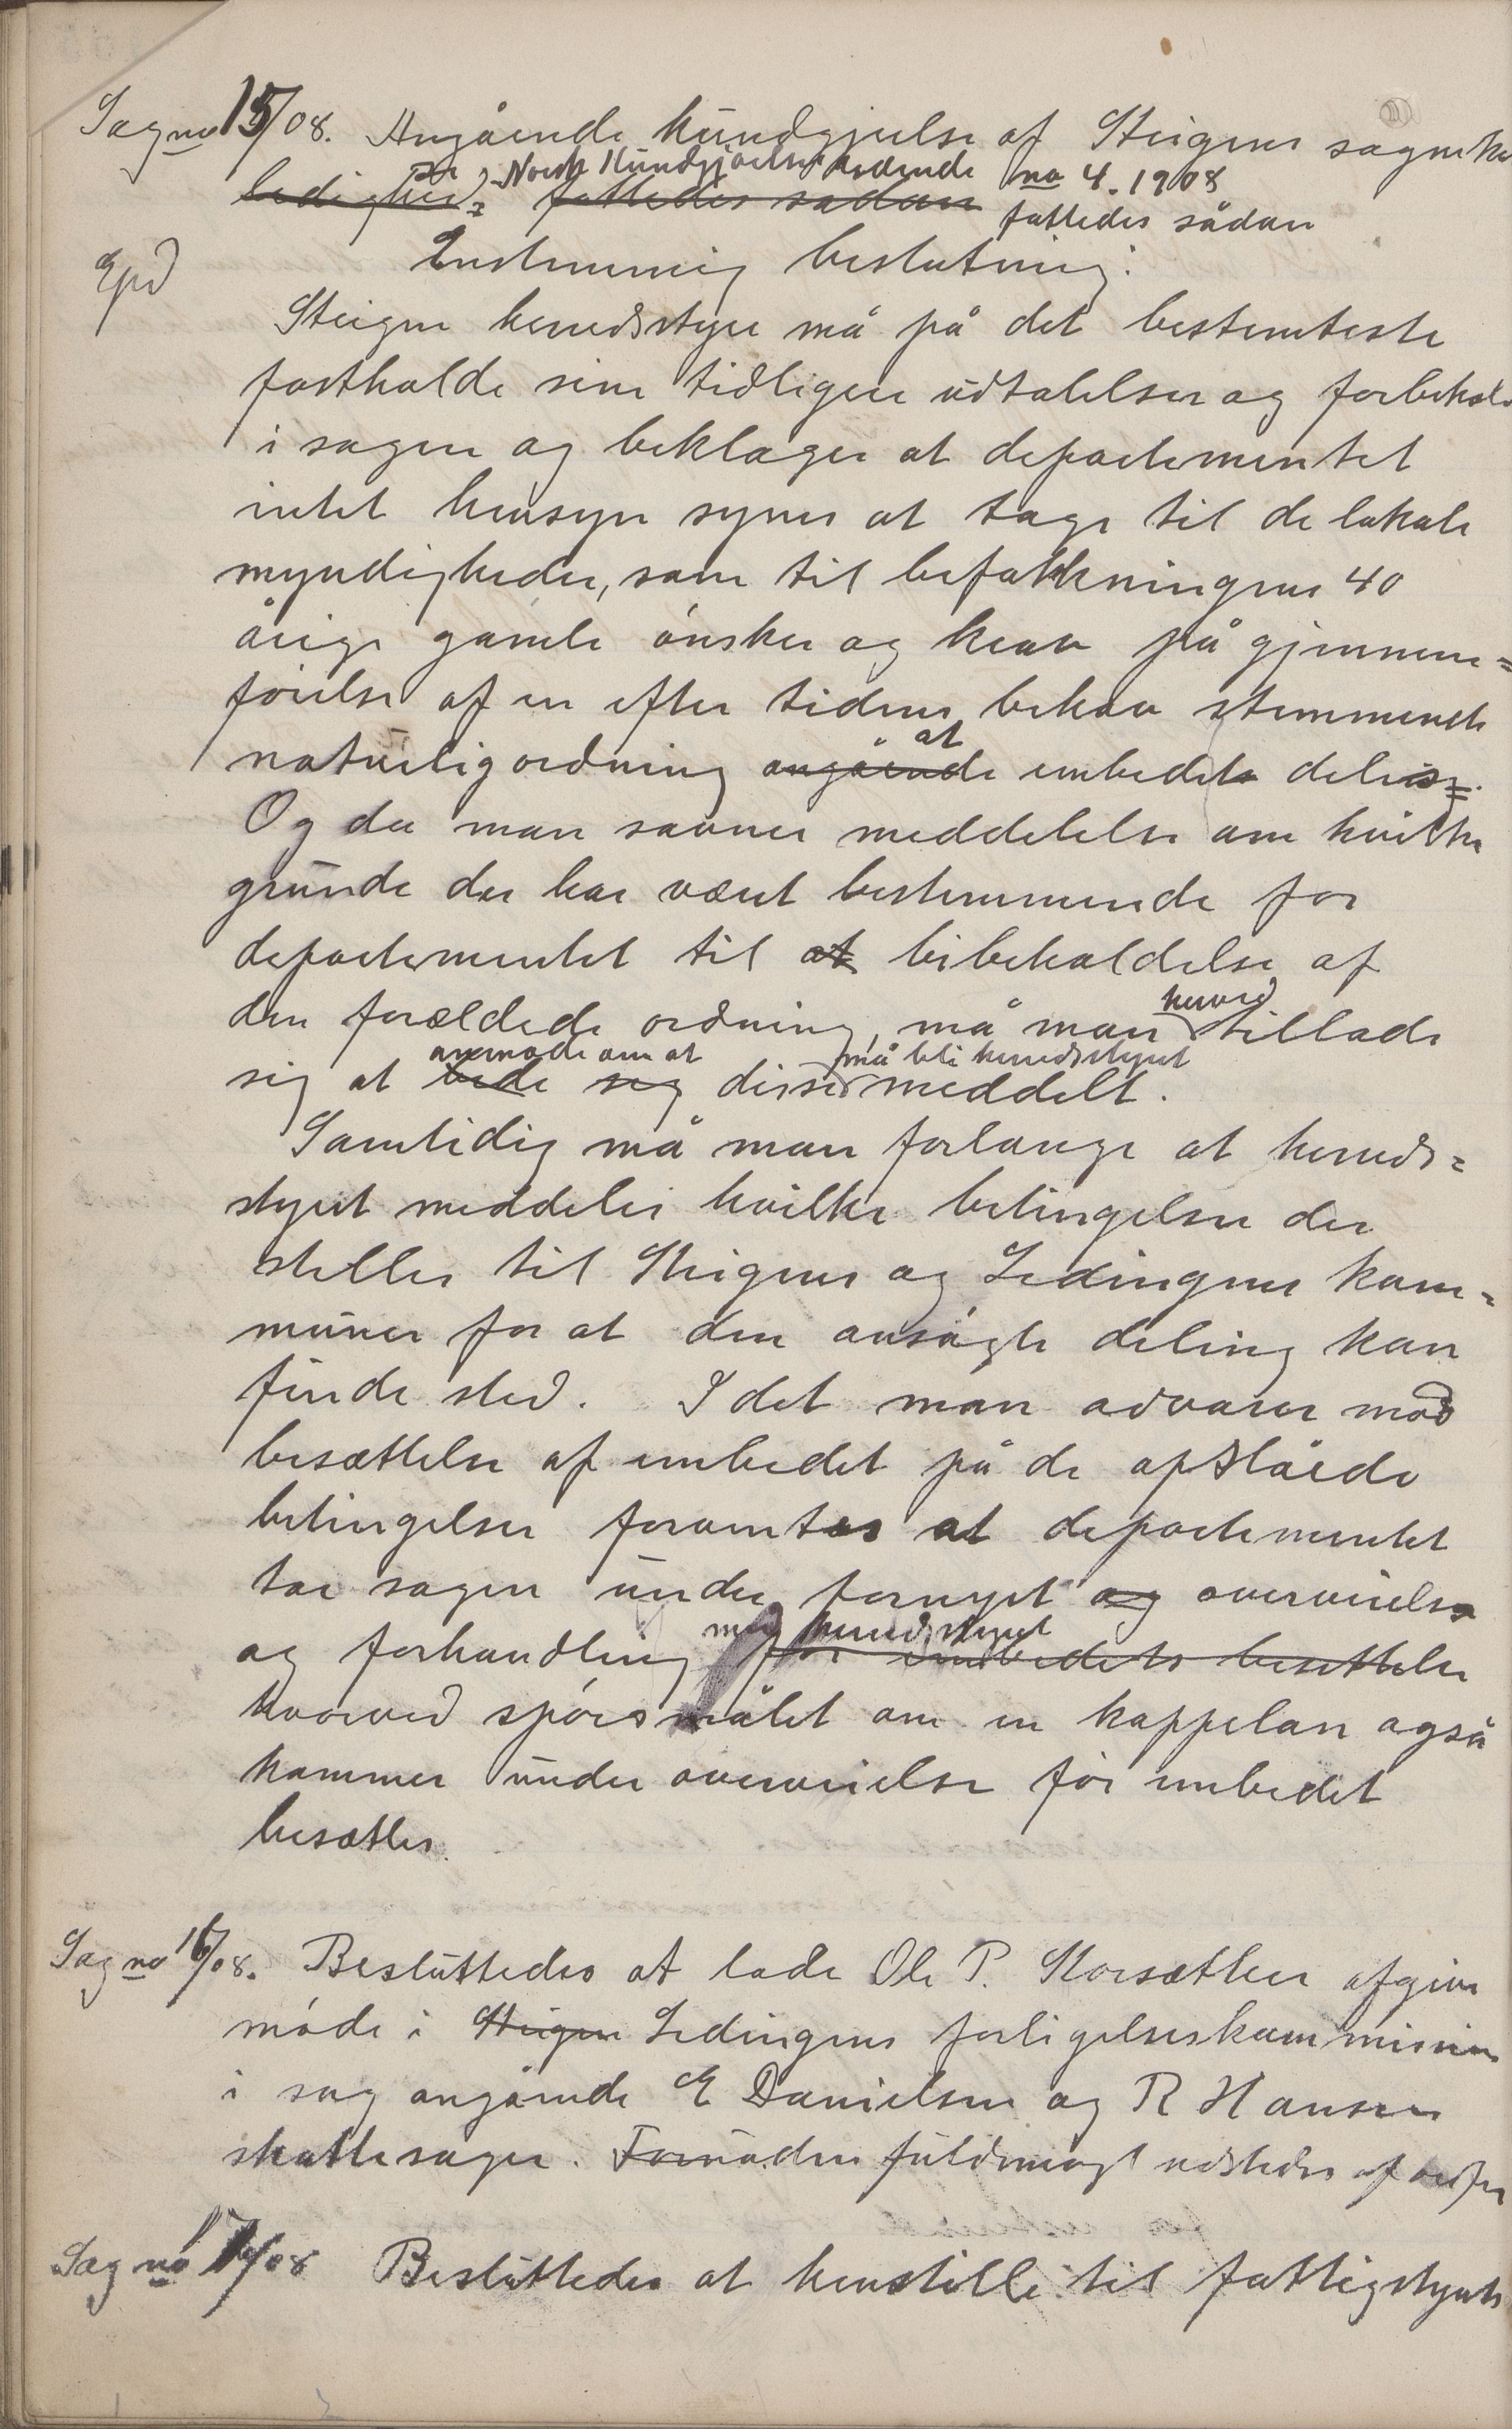 Sag no 15/08. Angående kundgjørelse af Steigens sogneka
ledighed i Norsk Kundgjørelses tidende no 4. 1908
fattedes sådan fattedes sådan
Exp Enstemmig beslutning:
Steigen herredsstyre må på det bestemteste
fastholde sine tidligere udtalelser og forbehold
i sagen og beklager at departementet
intet hensyn synes at tage til de lokale
myndigheder, som til befolkningens 40
årige gamle ønsker og krav på gjennem=
førelse af en efter tidens behov stemmende
naturlig ordning angående at embedet deles.
Og da man savner meddelelse om hvilke
grunde der har været bestemmende for
departementet til at bibeholdelse af
den forældede ordning, må man herved tillade
sig at bede sig anmode om at disse må bli herredsstyret meddelt.
Samtidig må man forlange at herreds=
styret meddeles hvilke betingelser der
stilles til Steigens og Lødingens kom=
muner for at den ansøgte deling kan
finde sted. I det man advarer mod
besættelse af embedet på de opslåede
betingelser forventes at departementet
tar sagen under fornyet og overveielse
og forhandling med herredsstyret før embedets besettelse
hvorved spørsmålet om en kappelan også
kommer under overveielse før embedet
besættes.
Sag no 16/08. Besluttedes at lade Ole P. Storsætter afgive
møde i Steigen Lødingens forligelseskommission
i sag angående E Danielsen og R Hansens
skattesager. Fornøden fuldmagt udstedes af ordfør
Sag no 17/08 Besluttedes at henstille til fattigstyrets